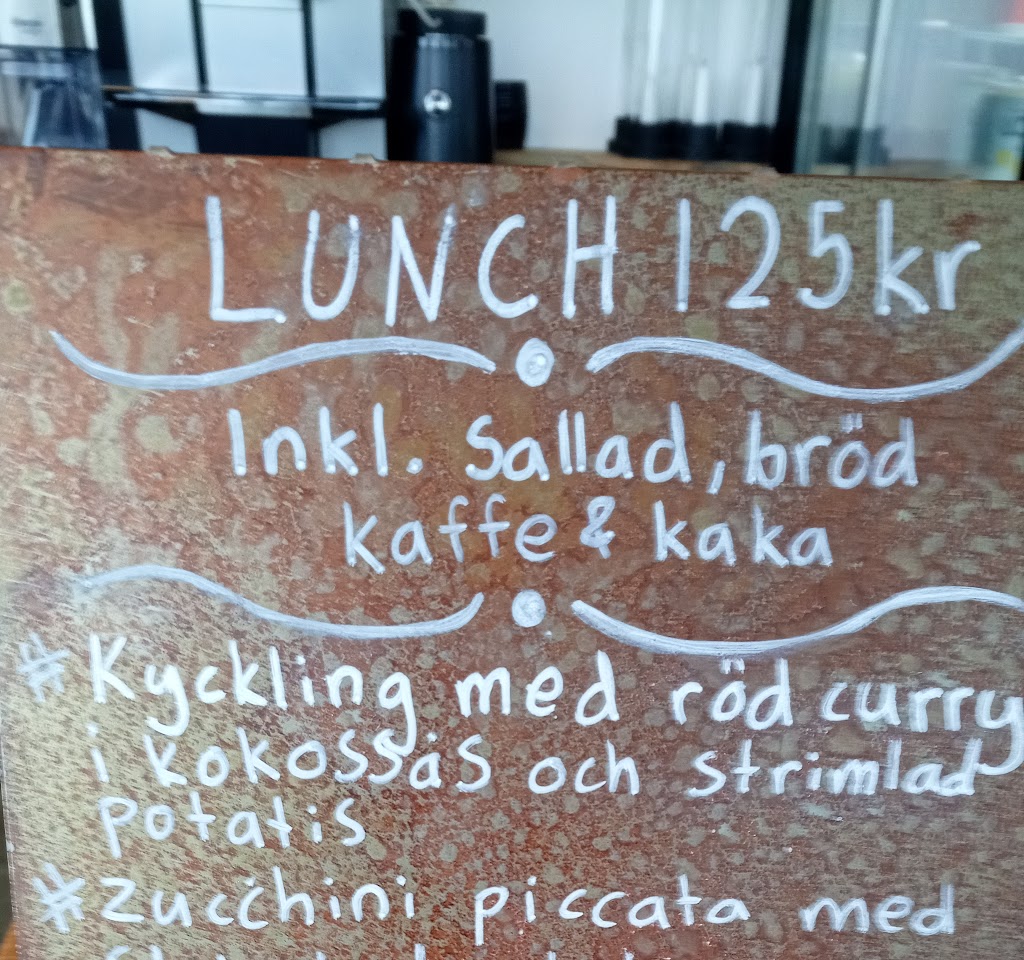 LUNCH 125kr
Inkl. Sallad, bröd
kaffe & kaka
# Kyckling med röd curry
i kokossås och strimlad
potatis
# Zucchini piccata med